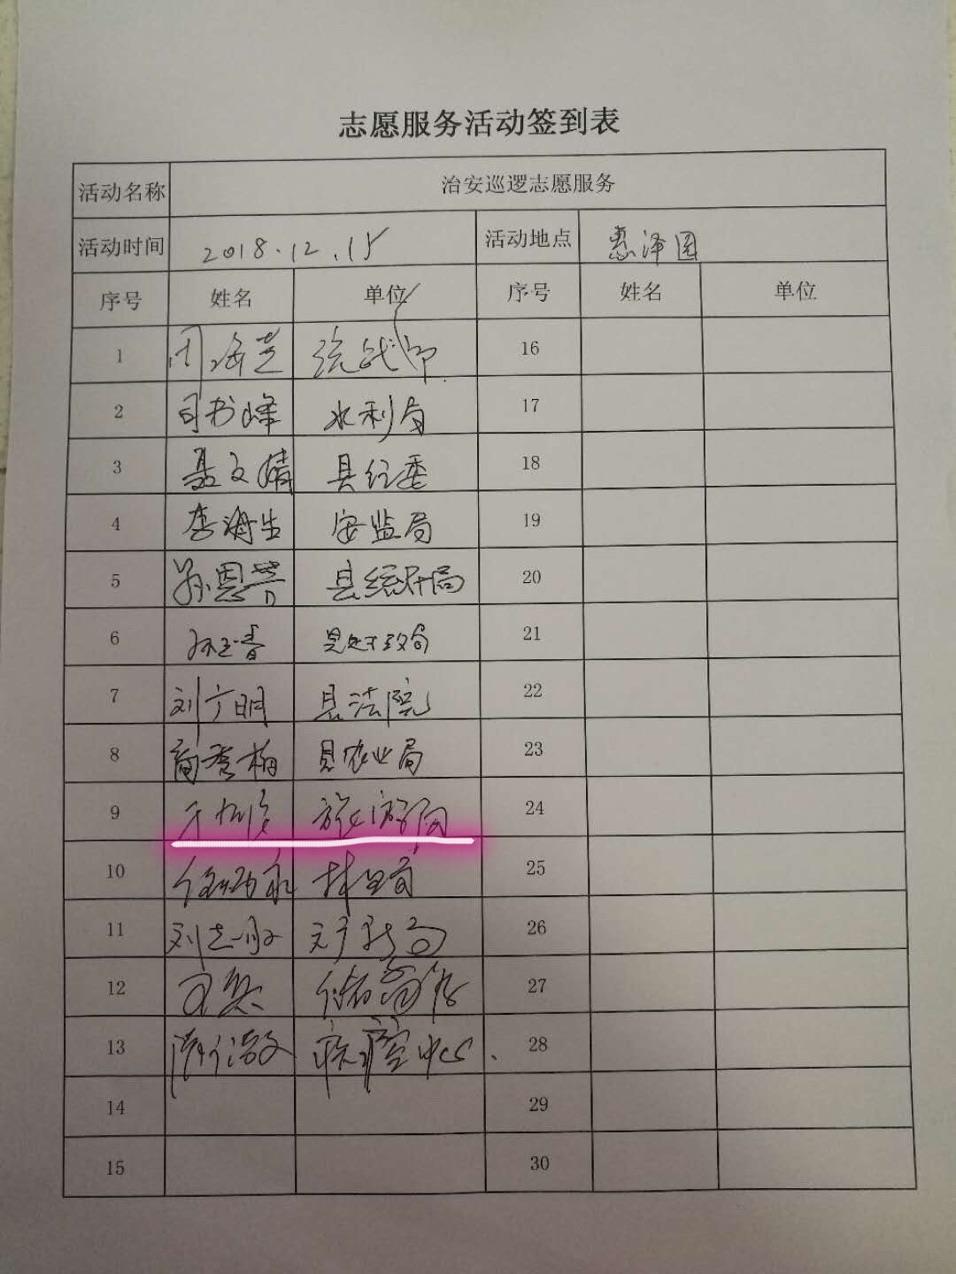 志愿服务活动签到表
活动名称 治安巡逻志愿服务
活动时间 2018.12.15 活动地点 惠泽园
序号 姓名 单位 序号 姓名 单位
1 周海芝 统战部 16
2 司书峰 水利局 17
3 聂文婧 县经委 18
4 李海生 安监局 19
5 孙恩芳 县统计局 20
6 县财政局 21
7 刘广明 县法院 22
8 商秀梅 县农业局 23
9 旅游局 24
10 林业局 25
11 26
12 27
13 疾控中心 28
14 29
15 30